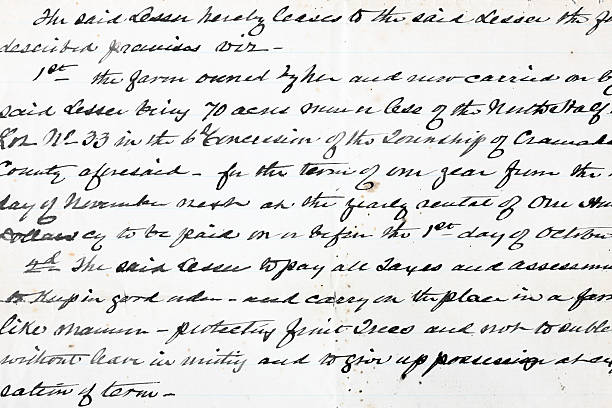 The said Lessor hereby leases to the said Lessee the
described premises viz -
1st the farm owned by her and now carried on by
said Lessee being 70 acres more or less of the North Half of
Lot No 33 in the 6th Concession of the Township of Cramah
County aforesaid - for the term of one year from the
day of November next at the yearly rental of One Hun
Dollars cy to be paid on or before the 1st day of October
2d The said Lessee to pay all Taxes and assessm
to Keep in good order - and carry on the place in a far
like manner - protecting fruit Trees and not to suble
without leave in writing and to give up possession at
sation of term -